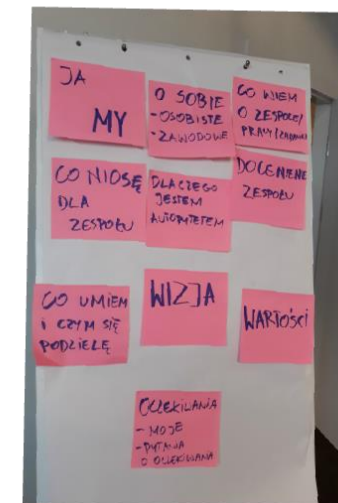 JA
MY
O SOBIE
- OSOBISTE
- ZAWODOWE
CO WIEM
O ZESPOLE/
PRACY/ZADANIU
CO NIOSĘ
DLA
ZESPOŁU
DLACZEGO
JESTEM
AUTORYTETEM
DOCENIENIE
ZESPOŁU
CO UMIEM
I CZYM SIĘ
PODZIELĘ
WIZJA
WARTOŚCI
OCZEKIWANIA
- MOJE
- PYTANIA
O OCZEKIWANIA